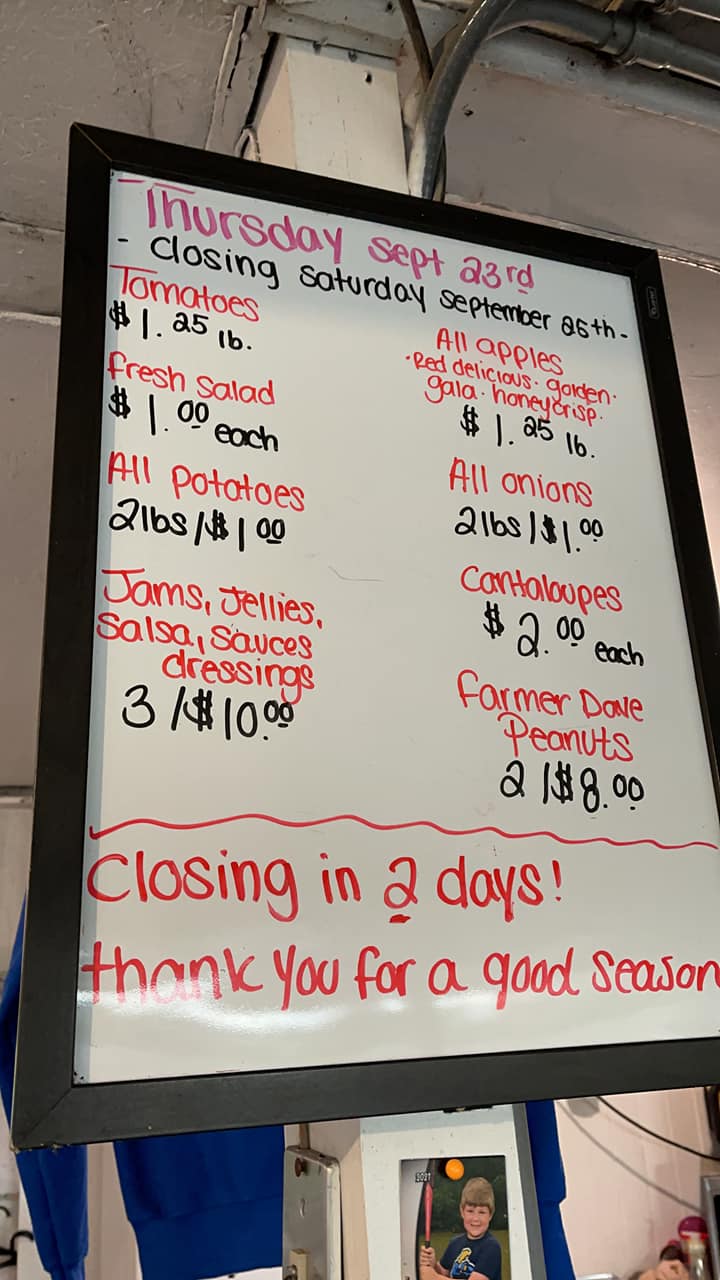 Thursday Sept 23rd
- Closing Saturday September 25th -
Tomatoes
$1.25 lb.
fresh salad
$1.00 each
All potatoes
2lbs/$1 00
Jams, Jellies,
Salsa, Sauces
dressings
3/$10.00
All apples
·Red delicious· golden·
gala· honeycrisp·
$1.25 lb.
All onions
2lbs/$1.00
Cantaloupes
$2.00 each
farmer Dave
Peanuts
2/$8.00
Closing in 2 days!
thank you for a good Season
2021